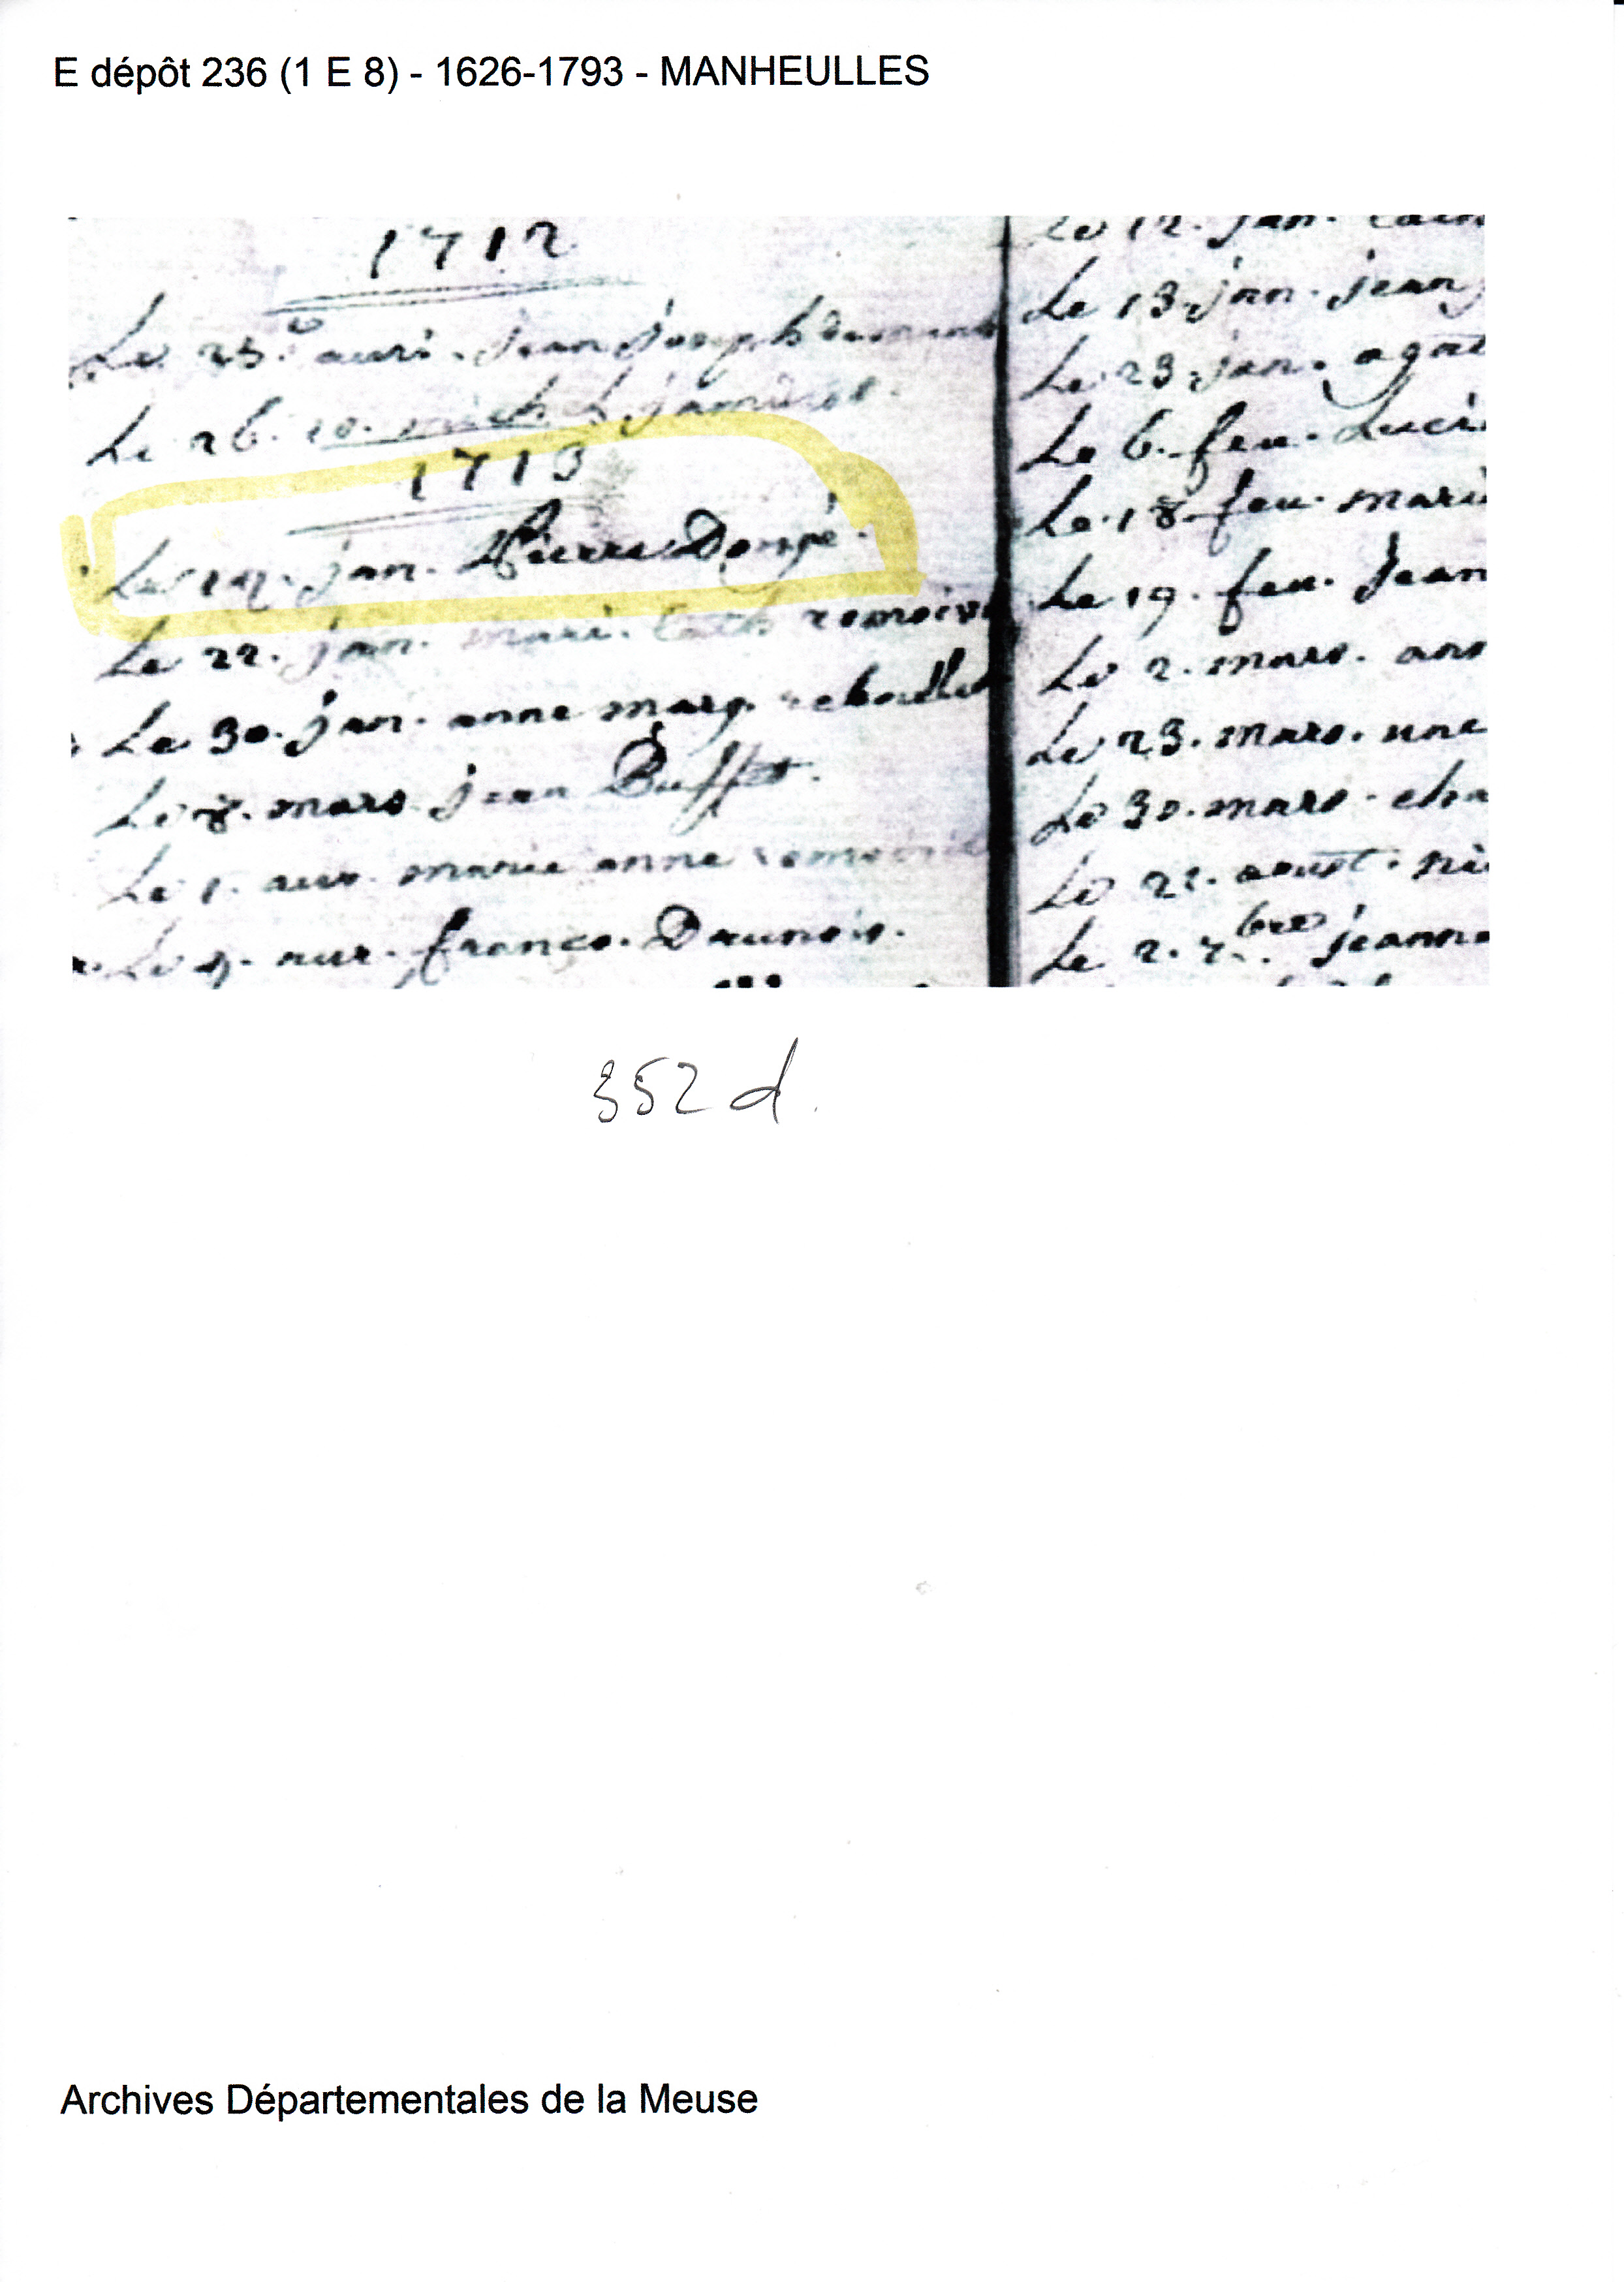 E dépôt 236 (1 E 8) - 1626-1793 - MANHEULLES
1712
Le 25. auri. jean joseph
Le 26.
1713
Le 12. jan. Pierre Dongé.
Le 22. jan. mari. Cath remoiv
Le 30. jan. anne marg.
Le 8. mars. jean Buffet.
Le 1. aur. marie anne
Le 9. aur. franco. Daunois.
Le 12. jan.
Le 13. jan. jean
Le 23. jan. agat
Le 6. feu. Luci
Le 18. feu. mari
Le 19. feu. jean
Le 2. mars. ann
Le 23. mars. une
Le 30. mars. cha
Le 22. aoust. ni
Le 2. 7.bre jeanne
352 d.
Archives Départementales de la Meuse